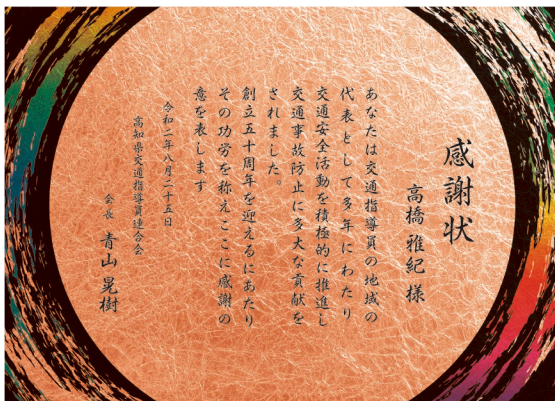 感謝状
高橋雅紀様
あなたは交通指導員の地域の
代表として多年にわたり
交通安全活動を積極的に推進し
交通事故防止に多大な貢献を
されました。
創立五十周年を迎えるにあたり
その功労を称えここに感謝の
意を表します
令和二年八月二十五日
高知県交通指導員連合会
会長 青山晃樹